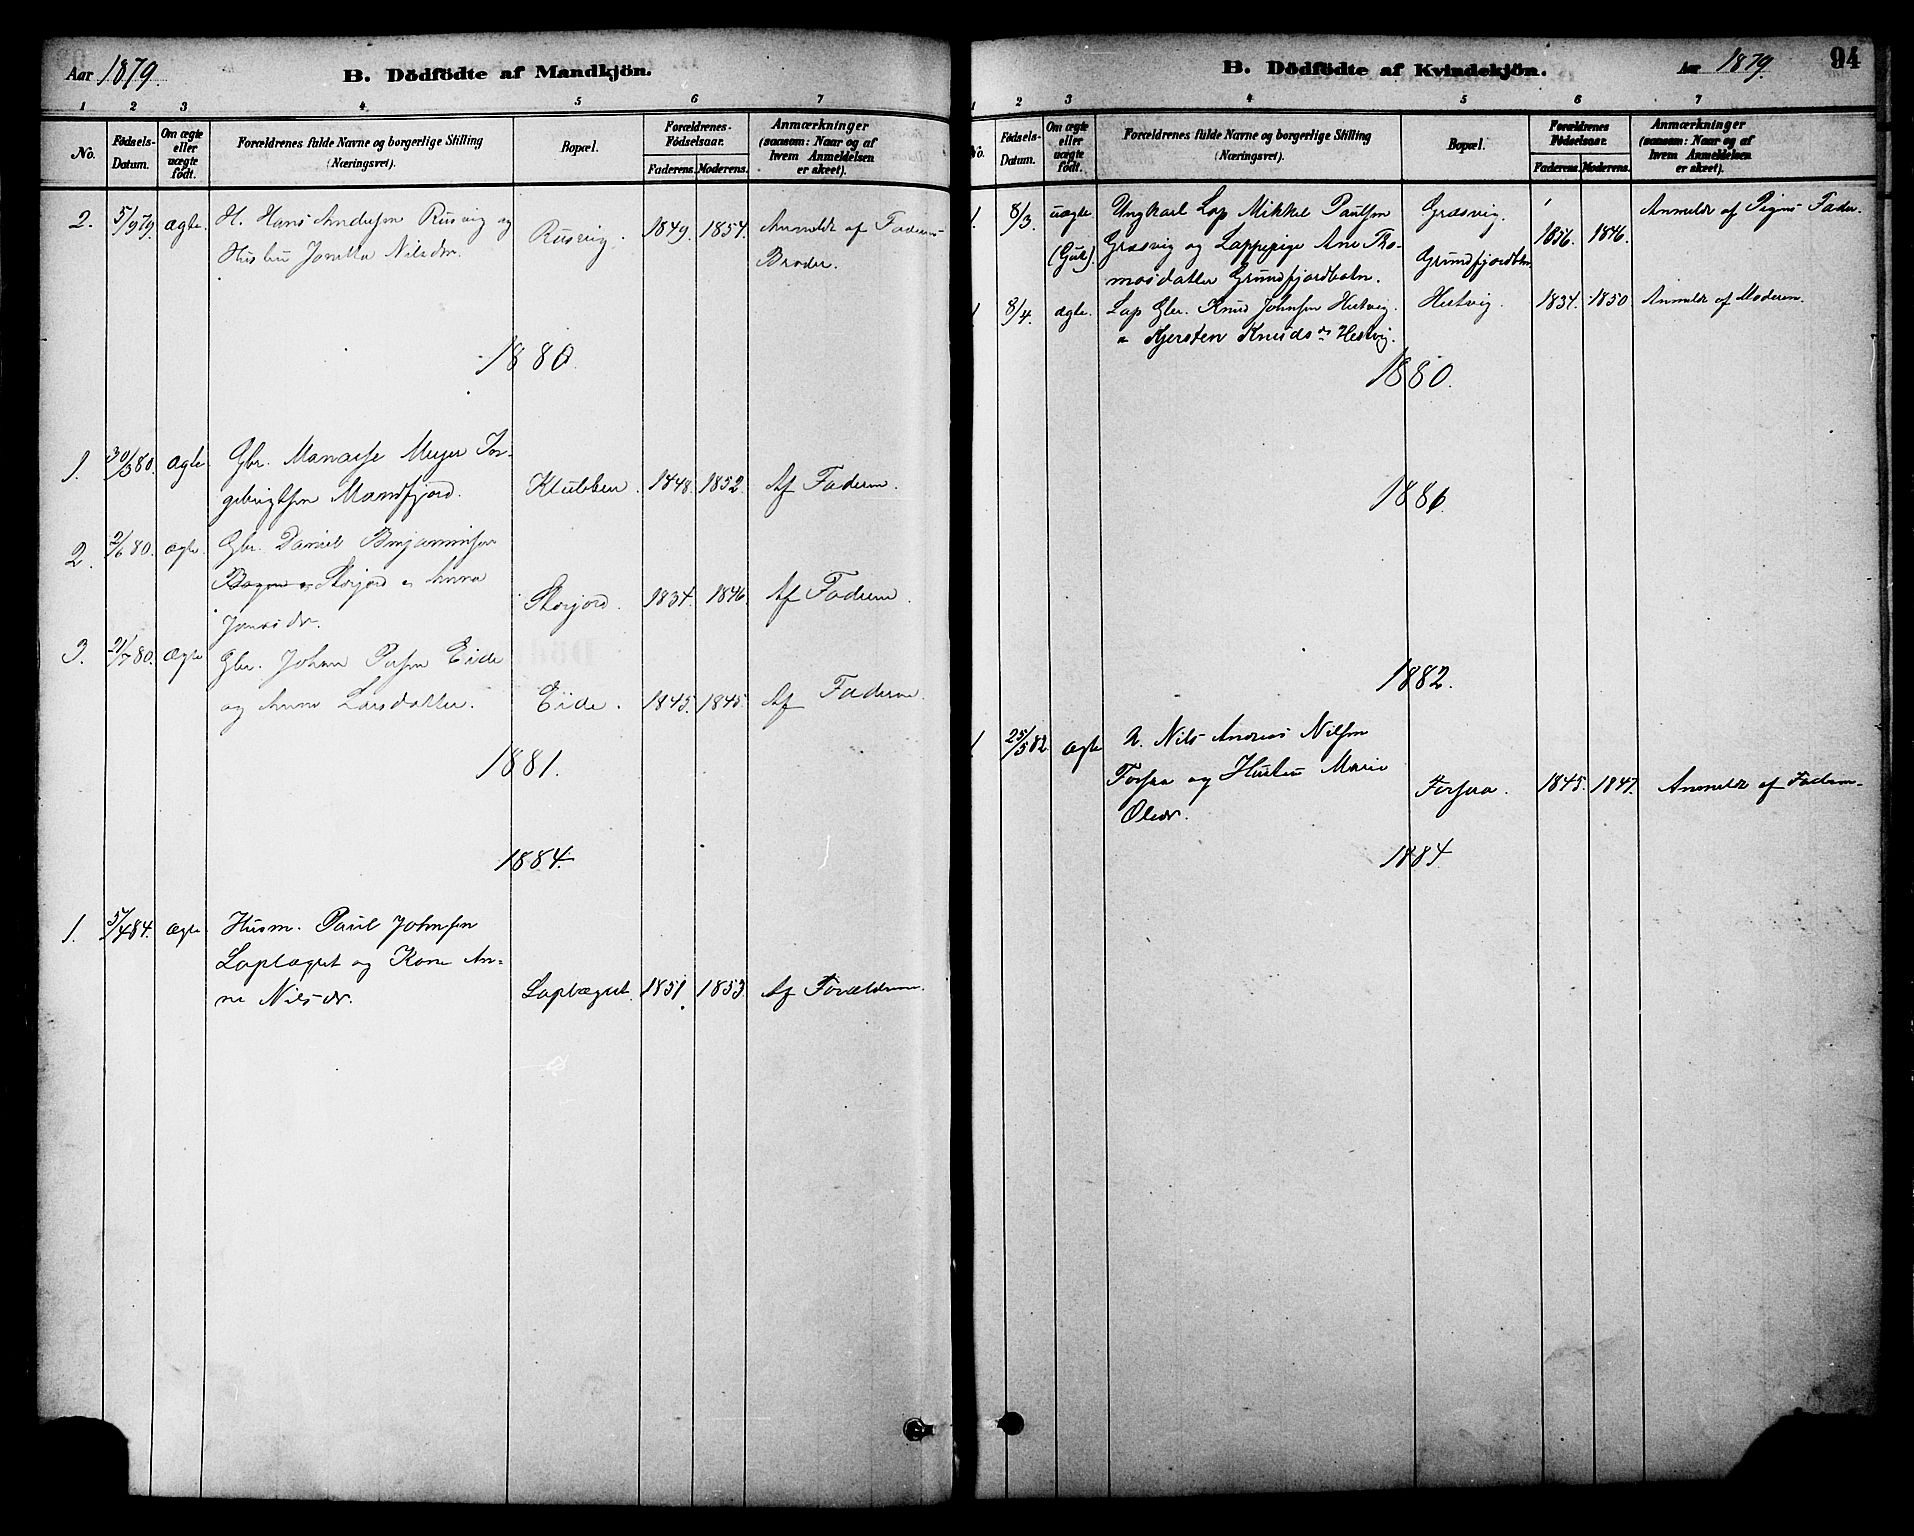 Aar 1879.
B. Dödfödte af Mandkjön.
1 2 3 4 5 6 7
No.
Födsels-Datum.
Om ægte eller uægte födt.
Forældrenes fulde Navne og borgerlige Stilling (Næringsvei).
Bopæl.
Forældrenes Födselsaar.
Faderens. Moderens.
Anmærkninger (saasom: Naar og af hvem Anmeldelsen er skeet).
2. 5/9 79. ægte. H. Hans Andersen Rusvig og
Hustru Jonetta Nilsdr.
Rusvig. 1849. 1854. Anmeldt af Faderens
Broder.
1880.
1. 30/3 80. ægte Gbr. Manasse Meyer In-
gebrigtsen Mandfjord. Klubben. 1848. 1852. Af Faderen.
2. 2/6 80. ægte. Gbr. Daniel Benjaminsen
Storjord Anna
Jonasdr.
Storjord. 1834. 1846. Af Faderen.
3. 21/7 80. ægte Gbr. Johan Eide
og Anna Larsdatter. Eide. 1845. 1845. Af Faderen.
1881.
1884.
1. 5/4 84. ægte Husm. Paul Johnsen
Laplægret og Kone An-
ne Nilsdr.
Laplægret. 1851. 1853 Af Forældrene.
B. Dödfödte af Kvindekjön.
Aar 1879
94
1 2 3 4 5 6 7
No.
Födsels-Datum.
Om ægte eller uægte födt.
Forældrenes fulde Navne og borgerlige Stilling (Næringsvei).
Bopæl.
Forældrenes Födselsaar.
Faderens. Moderens.
Anmærkninger (saasom: Naar og af hvem Anmeldelsen er skeet).
1. 8/3. uægte. Ungkarl Lap Mikkel Paulsen Græsvig. 1856. 1846. Anmeldt af Pigens Fader.
Græsvig og Lappepige Ane Tho-
masdatter Grundfjordbotn.
Grundfjordbotn
1 8/4. ægte. Lap Gbr. Knud Johnsen Hestvig. Hestvig. 1834. 1850 Anmeldt af Moderen.
Kjersten Knudsdr Hestvig.
1880.
1881.
1882.
1 25/5 82 ægte N. Nils Andreas Nilsen
Forsaa og Hustru Marie
Olesdr.
Forsaa. 1845. 1847. Anmeldt af Faderen.
1884.